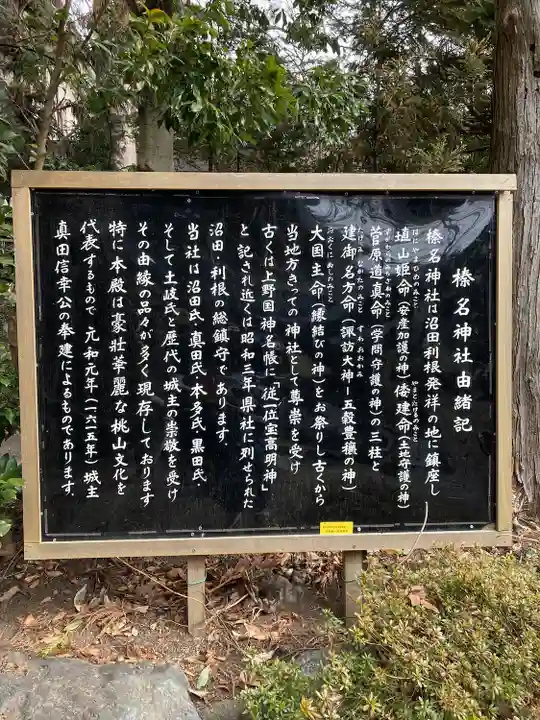 榛名神社由緒記
榛名神社は沼田利根発祥の地に鎮座し
はにやまひめのみこと やまとたけるのみこと
埴山姫命(安産加護の神)倭建命(土地守護の神)
すがわらのみちざねのみこと
菅原道真命(学問守護の神)の三社と
たけみなかたのみこと すわおおかみ
建御名方命(諏訪大神ー五穀豊穣の神)
おおくにぬしのみこと
大国主命(縁結びの神)をお祭りし古くから
当地方きっての神社として尊崇を受け
古くは上野国神名帳に「従一位宝高明神」
と記され近くは昭和三年県社に列せられた
沼田・利根の総鎮守であります。
当社は沼田氏、真田氏、本多氏、黒田氏
そして土岐氏と歴代の城主の崇敬を受け
その由縁の品々が多く現存しております
特に本殿は豪壮華麗な桃山文化を
代表するもので 元和元年(一六一五年)城主
真田信幸公の奉建によるものであります.